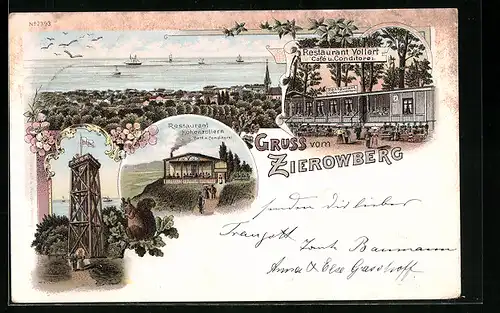 No 2393
Restaurant Vollert
Café u. Conditorei.
Restaurant
Hohenzollern
Café u. Conditorei
GRUSS vom
ZIEROWBERG
senden dir lieber
Traugott Tante Baumann
Anna & Else Gasshoff